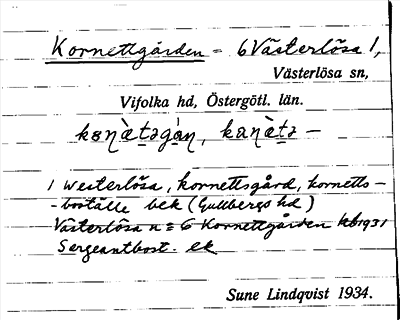 Kornettgården - 6 Västerlösa 1,
Västerlösa sn,
Vifolka hd, Östergötl. län.
kɐnὲtəgàn, kanὲtə -
1 Westerlösa, kornettsgård, kornetts-
-boställe bek (Gullbergs hd)
Västerlösa n = 6 Kornettgården kb 1931
Sergeantbost. ek
Sune Lindqvist 1934.